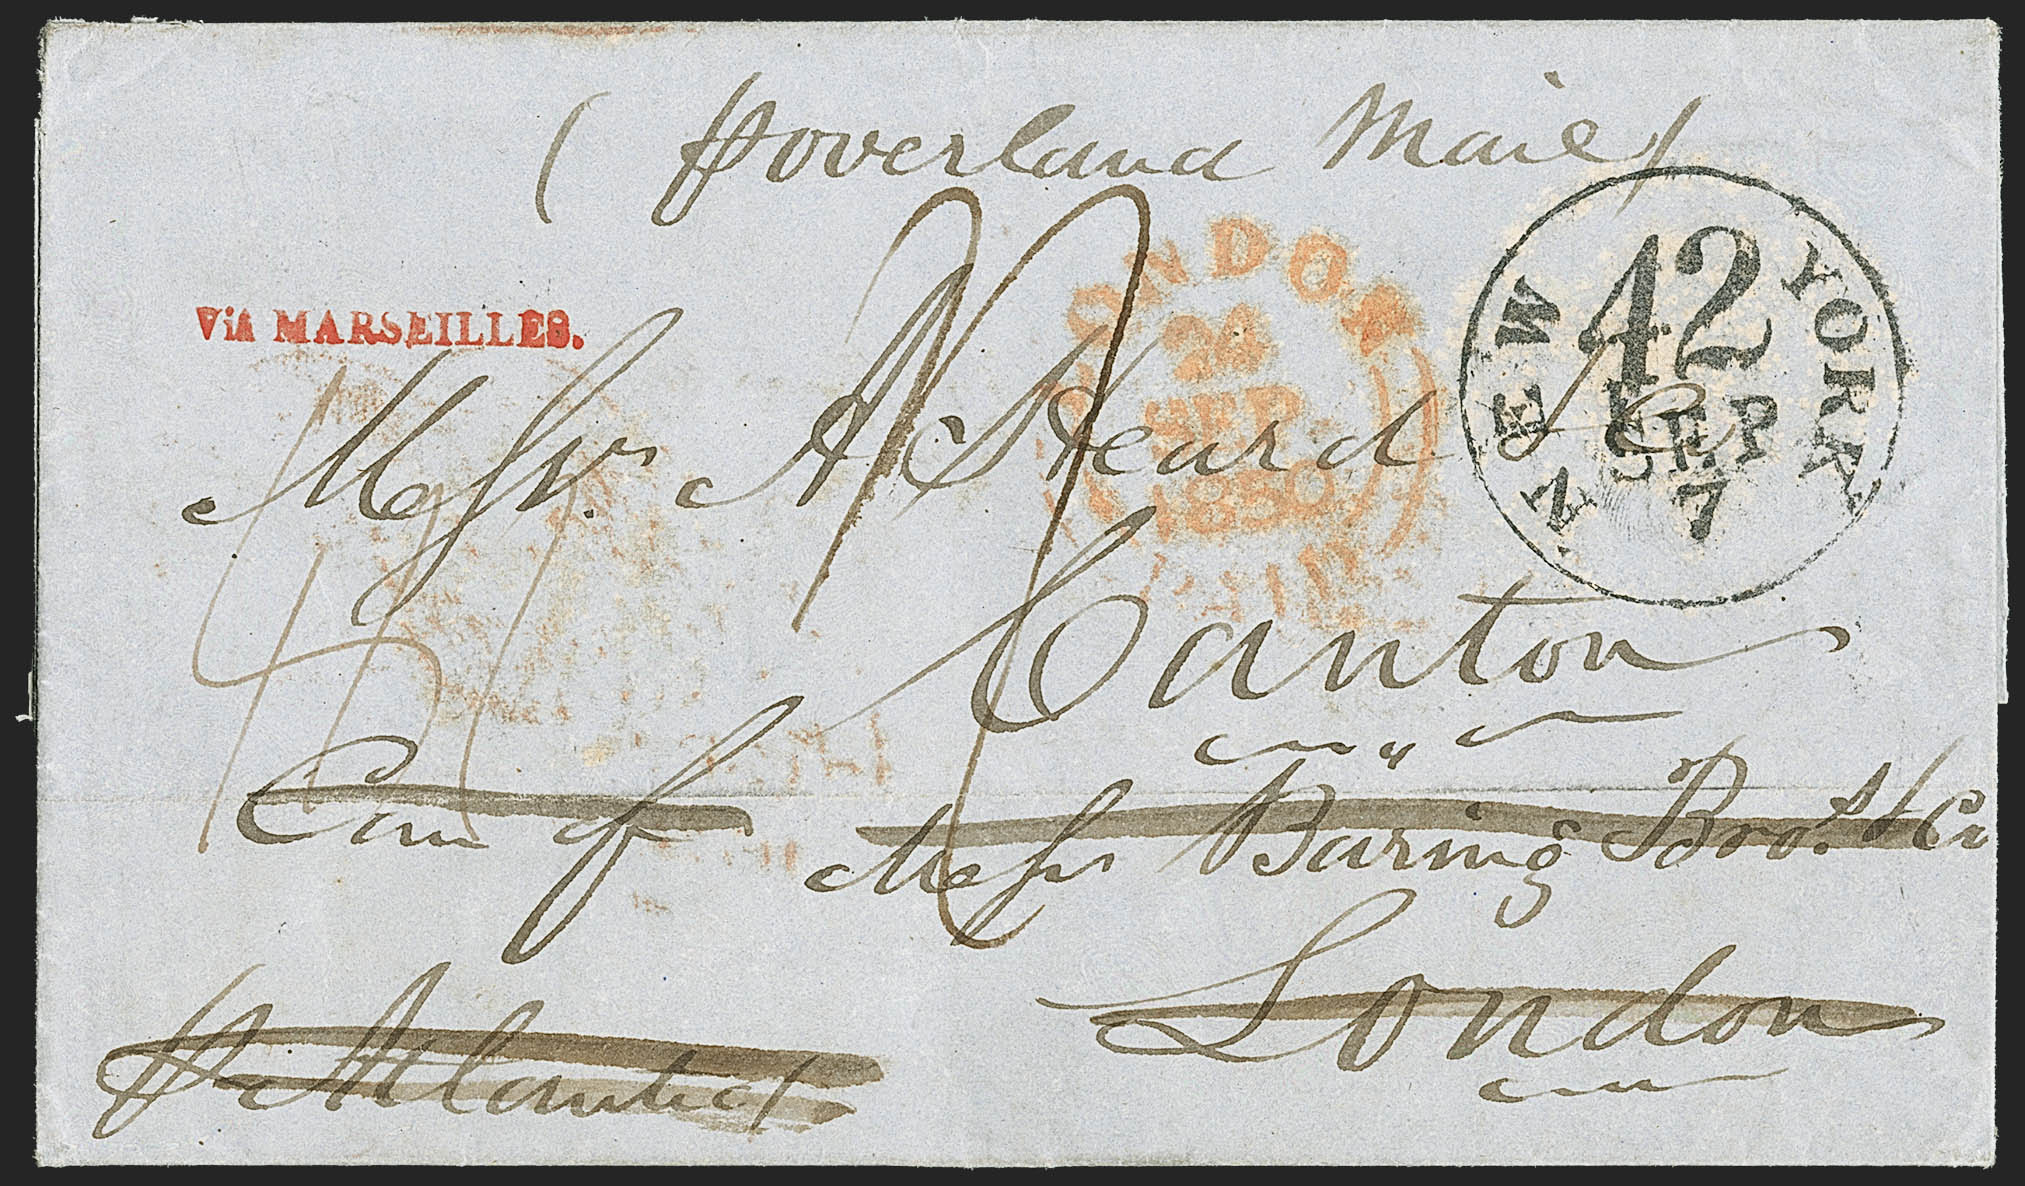 ( p overland Mail )
Via MARSEILLES.
LONDON
24
SEP
1850
NEW YORK
42
SEP
7
Messrs A Heard & Co
Canton
Care of Messrs Baring Bros. & Co
London
p Atlantic